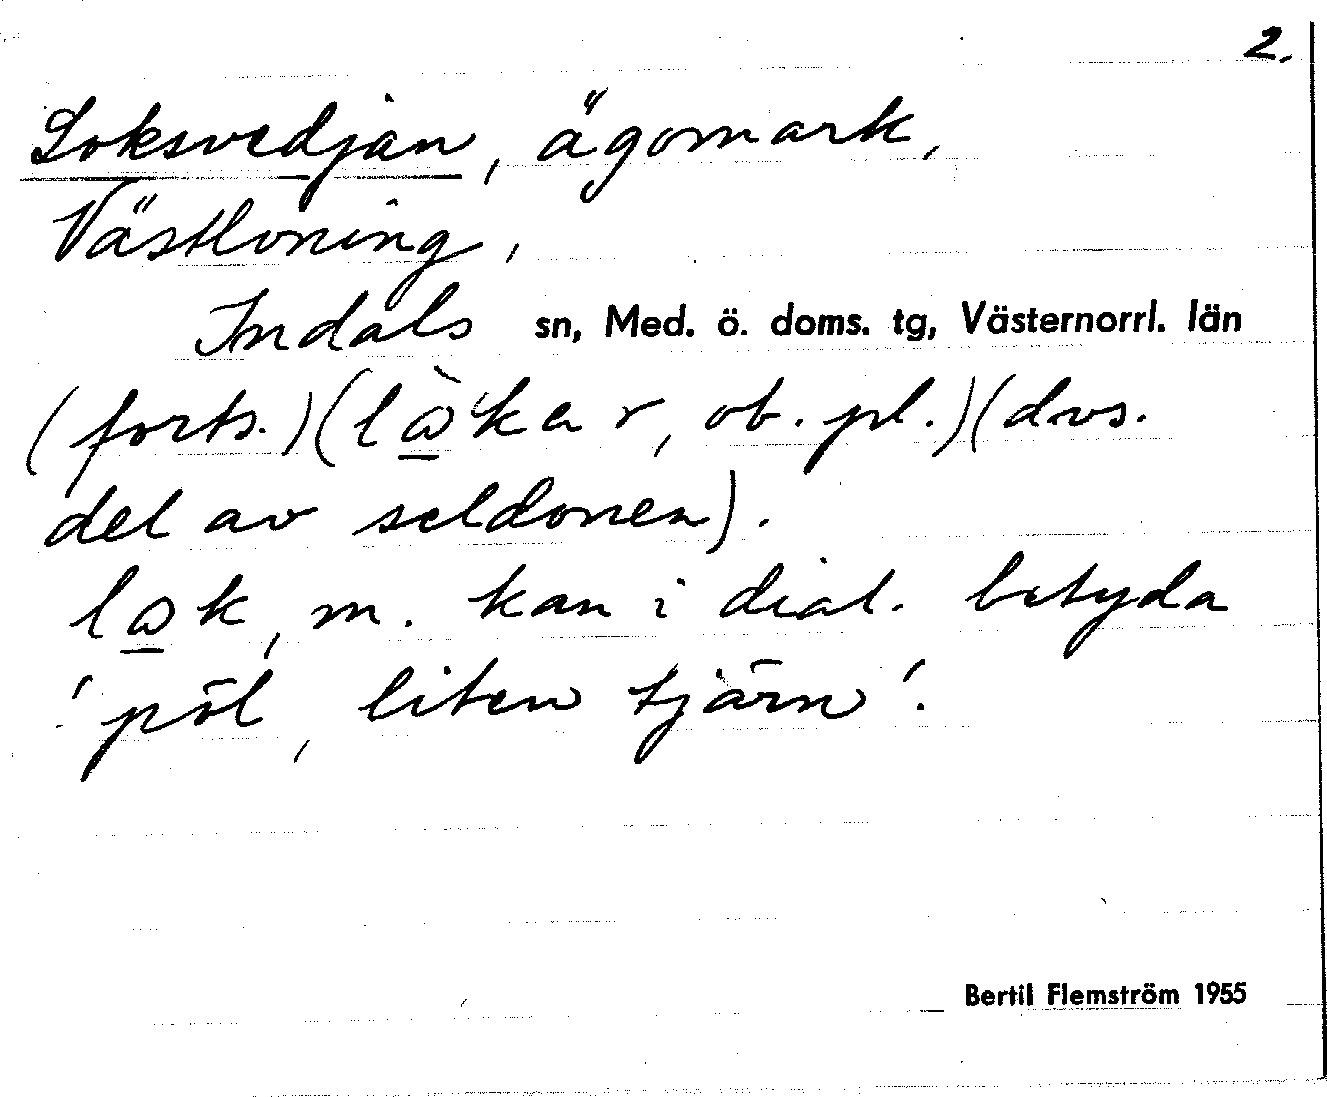 2.
Loksvedjan, ägomark,
Västloning,
Indals sn, Med. ö. doms. tg, Västernorrl. län
(forts.) (lɷ̀kar, ob. pl.) (dvs.
del av seldonen).
lɷk, m. kan i dial. betyda
'pöl, liten tjärn'.
Bertil Flemström 1955